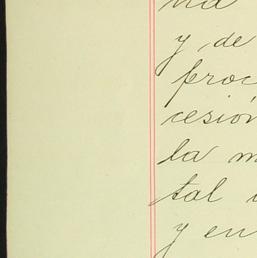 na
y de
proc
cesión
la m
tal
y en